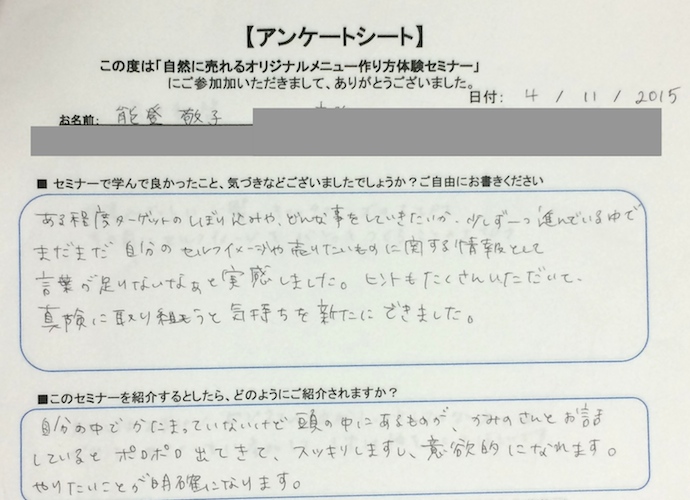 【アンケートシート】
この度は「自然に売れるオリジナルメニュー作り方体験セミナー」
にご参加加いただきまして、ありがとうございました。
日付: 4 / 11 / 2015
お名前: 能登 敬子
■ セミナーで学んで良かったこと、気づきなどございましたでしょうか？ご自由にお書きください
ある程度ターゲットのしぼり込みや、どんな事をしていきたいか、少しずつ進んでいる中で
まだまだ 自分の セルフイメージや売りたいものに関する情報として
言葉が足りないなぁと実感しました。ヒントもたくさんいただいて、
真険に取り組もうと気持ちを新たにできました。
■このセミナーを紹介するとしたら、どのようにご紹介されますか？
自分の中でかたまっていないけど頭の中にあるものが、かみのさんとお話
していると ポロポロ 出てきて、スッキリしますし、意欲的になれます。
やりたいことが明確になります。